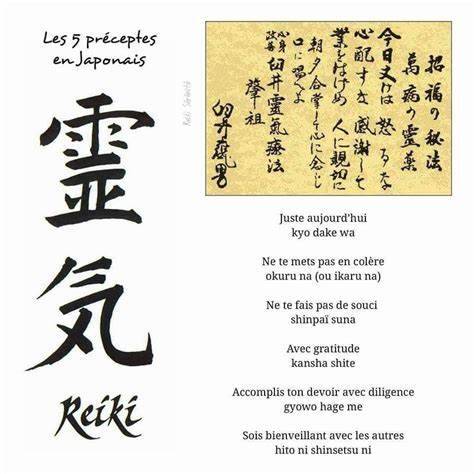 Les 5 préceptes
en Japonais
靈
気
Reiki
招福の秘法
萬病の靈薬
今日丈けは 怒るな
心配すな 感謝して
業をはげめ 人に親切に
朝夕合掌して心に念じ
口に唱へよ
心身改善 臼井靈氣療法
肇祖
臼井甕男
Juste aujourd'hui
kyo dake wa
Ne te mets pas en colère
okuru na (ou ikaru na)
Ne te fais pas de souci
shinpaï suna
Avec gratitude
kansha shite
Accomplis ton devoir avec diligence
gyowo hage me
Sois bienveillant avec les autres
hito ni shinsetsu ni